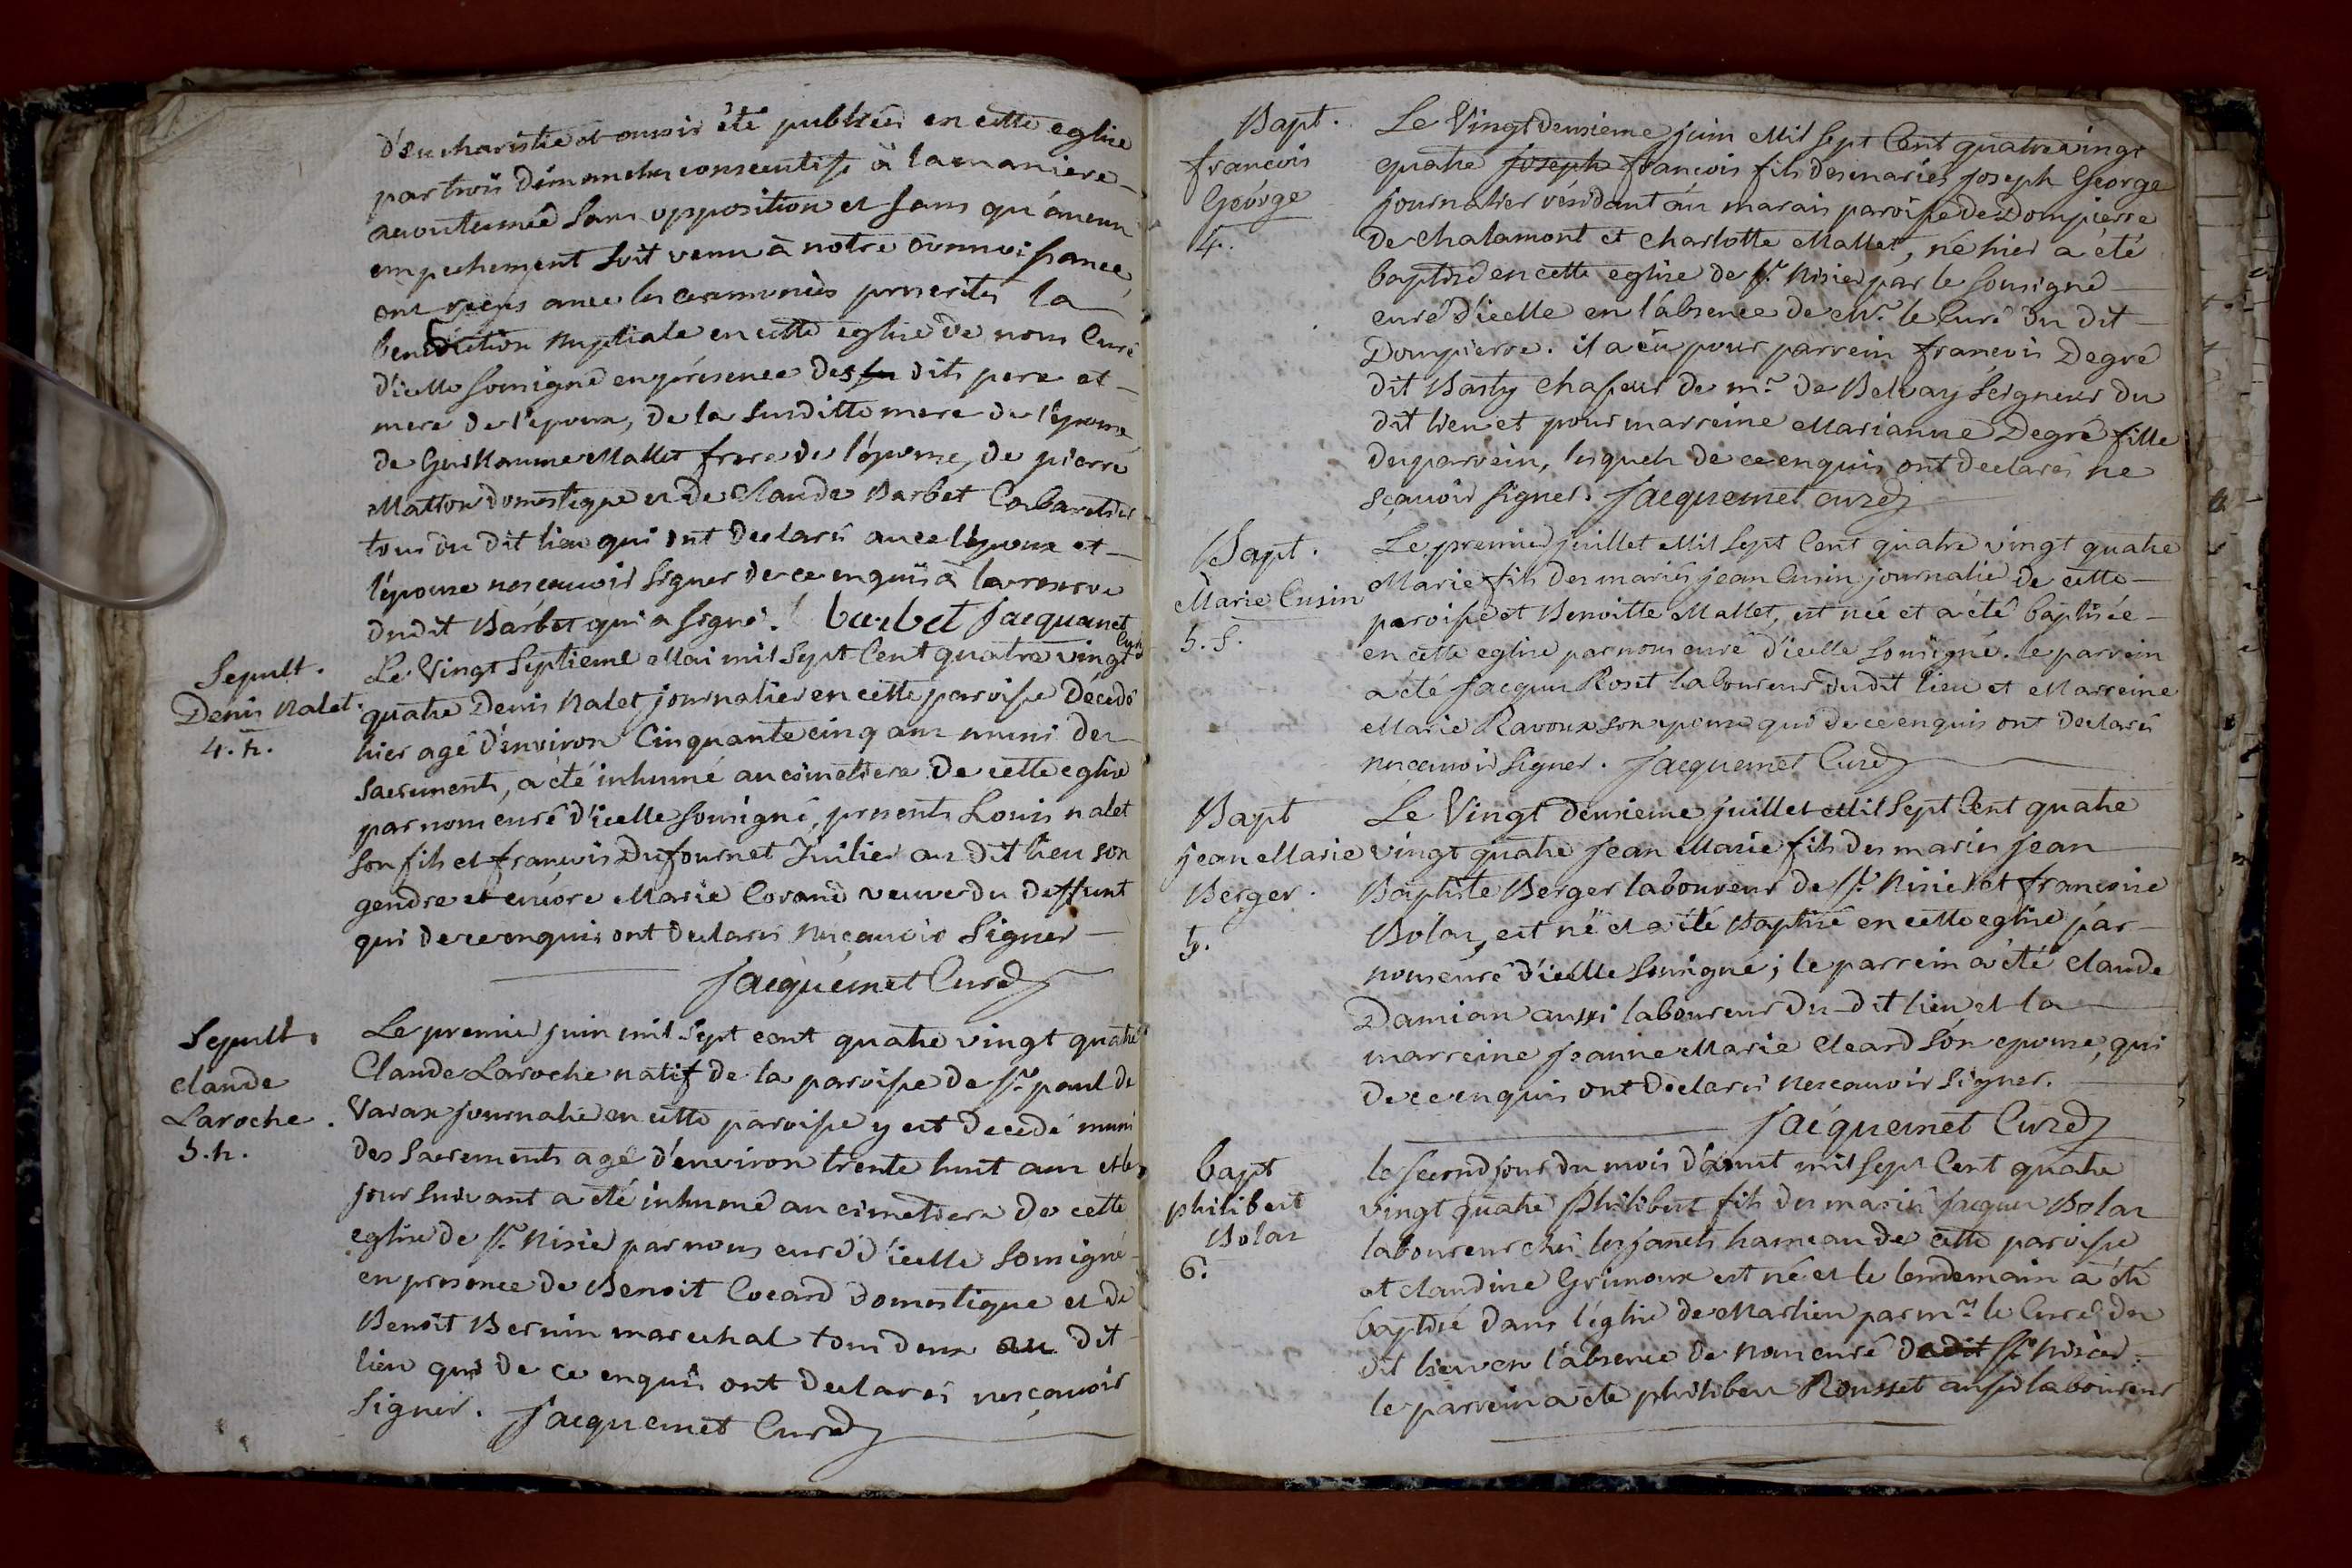 d'eucharistie et avoir été publiés en cette eglise
par trois dimanches consecutifs à la maniere
accoutumée sans opposition et sans qu'aucun
empechement soit venu à notre connoissance,
ont reçus avec les ceremonies prescrites la
benediction nuptiale en cette eglise de nous Curé
d'icelle soussigné en présence des su dits pere et
mere de l'epoux, de la susditte mere de l'epouse,
de Guillaume Mallet frere de l'épouse, de pierre
Matton domestique et de Claude Barbet Cabaretier
tous du dit lieu qui ont declaré avec l'epoux et
l'épouse ne scavoir signer de ce enquis à la reserve
dudit Barbet qui a signé. barbet Jacquemet
Curé
Sepult.
Denis Nalet.
4. h.
Le Vingt Septieme Mai mil Sept Cent quatre vingt
quatre Denis Nalet journalier en cette paroisse décedé
hier agé d'environ Cinquante cinq ans muni des
sacrements, a été inhumé au cimetiere de cette eglise
par nous curé d'icelle soussigné, presents Louis nalet
son fils et françois Dufournet Tuilier au dit lieu son
gendre et encore Marie Corand veuve du deffunt
qui de ce enquis ont declarés ne scavoir Signer
Jacquemet Curé
Sepult.
claude
Laroche.
5. h.
Le premier juin mil Sept cent quatre vingt quatre
Claude Laroche natif de la paroisse de St. paul de
Varax journalier en cette paroisse y est decedé muni
des Sacrements agé d'environ trente huit ans et le
jour suivant a été inhumé au cimetiere de cette
eglise de St. Nisier par nous curé d'icelle soussigné
en presence de Benoit Cocard domestique et de
Benoît Bernin marechal tous deux au dit
lieu qui de ce enquis ont declarés ne sçavoir
Signer. Jacquemet Curé
Bapt.
francois
George
4.
Le Vingt deuxieme juin Mil Sept Cent quatre vingt
quatre joseph francois fils des mariés joseph George
journalier résidant au marais paroisse de Dompierre
de Chalamont et Charlotte Mallet, né hier a été
baptisé en cette eglise de St. Nisier par le sousigné
curé d'icelle en l'absence de Mr. le Curé du dit
Dompierre. il a eu pour parrein francois Degré
dit Basty Chasseur de mr. de Belvay Seigneur du
dit lieu et pour marreine Marianne Degré fille
du parrein, lesquels de ce enquis ont declarés ne
sçavoir signer. Jacquemet curé
Bapt.
Marie Cusin
5. f.
Le premier juillet Mil Sept Cent quatre vingt quatre
Marie fils des mariés jean Cusin journalier de cette
paroisse et Benoitte Mallet, est née et a été baptisée
en cette eglise par nous curé d'icelle sousigné. le parrein
a été Jacques Roset laboureur dudit lieu et Marreine
Marie Ravoux son epouse qui de ce enquis ont declarés
ne scavoir signer. Jacquemet Curé
Bapt
jean Marie
Berger.
5.
Le Vingt deuxieme juillet Mil Sept Cent quatre
vingt quatre Jean Marie fils des mariés jean
Baptiste Berger laboureur de St. Nisier et francoise
Bolaz, est né et a été Baptisé en cette eglise par
nous curé d'icelle sousigné; le parrein a été claude
Damian aussi laboureur du dit lieu et la
marreine Jeanne Marie Cleard son epouse, qui
de ce enquis ont declarés ne scavoir signer.
Jacquemet Curé
bapt
philibert
Bolaz
6.
le second jour du mois d'aout mil Sept Cent quatre
vingt quatre Philibert fils des mariés Jacques Bolaz
laboureur chés les janets hameau de cette paroisse
et claudine Grimoux est né et le lendemain a été
baptisé dans l'églie de Marlieu par mr. le Curé du
dit lieu en l'absence de nous curé dudit St. Nisier.
le parrein a été philibert Rousset aussi laboureur